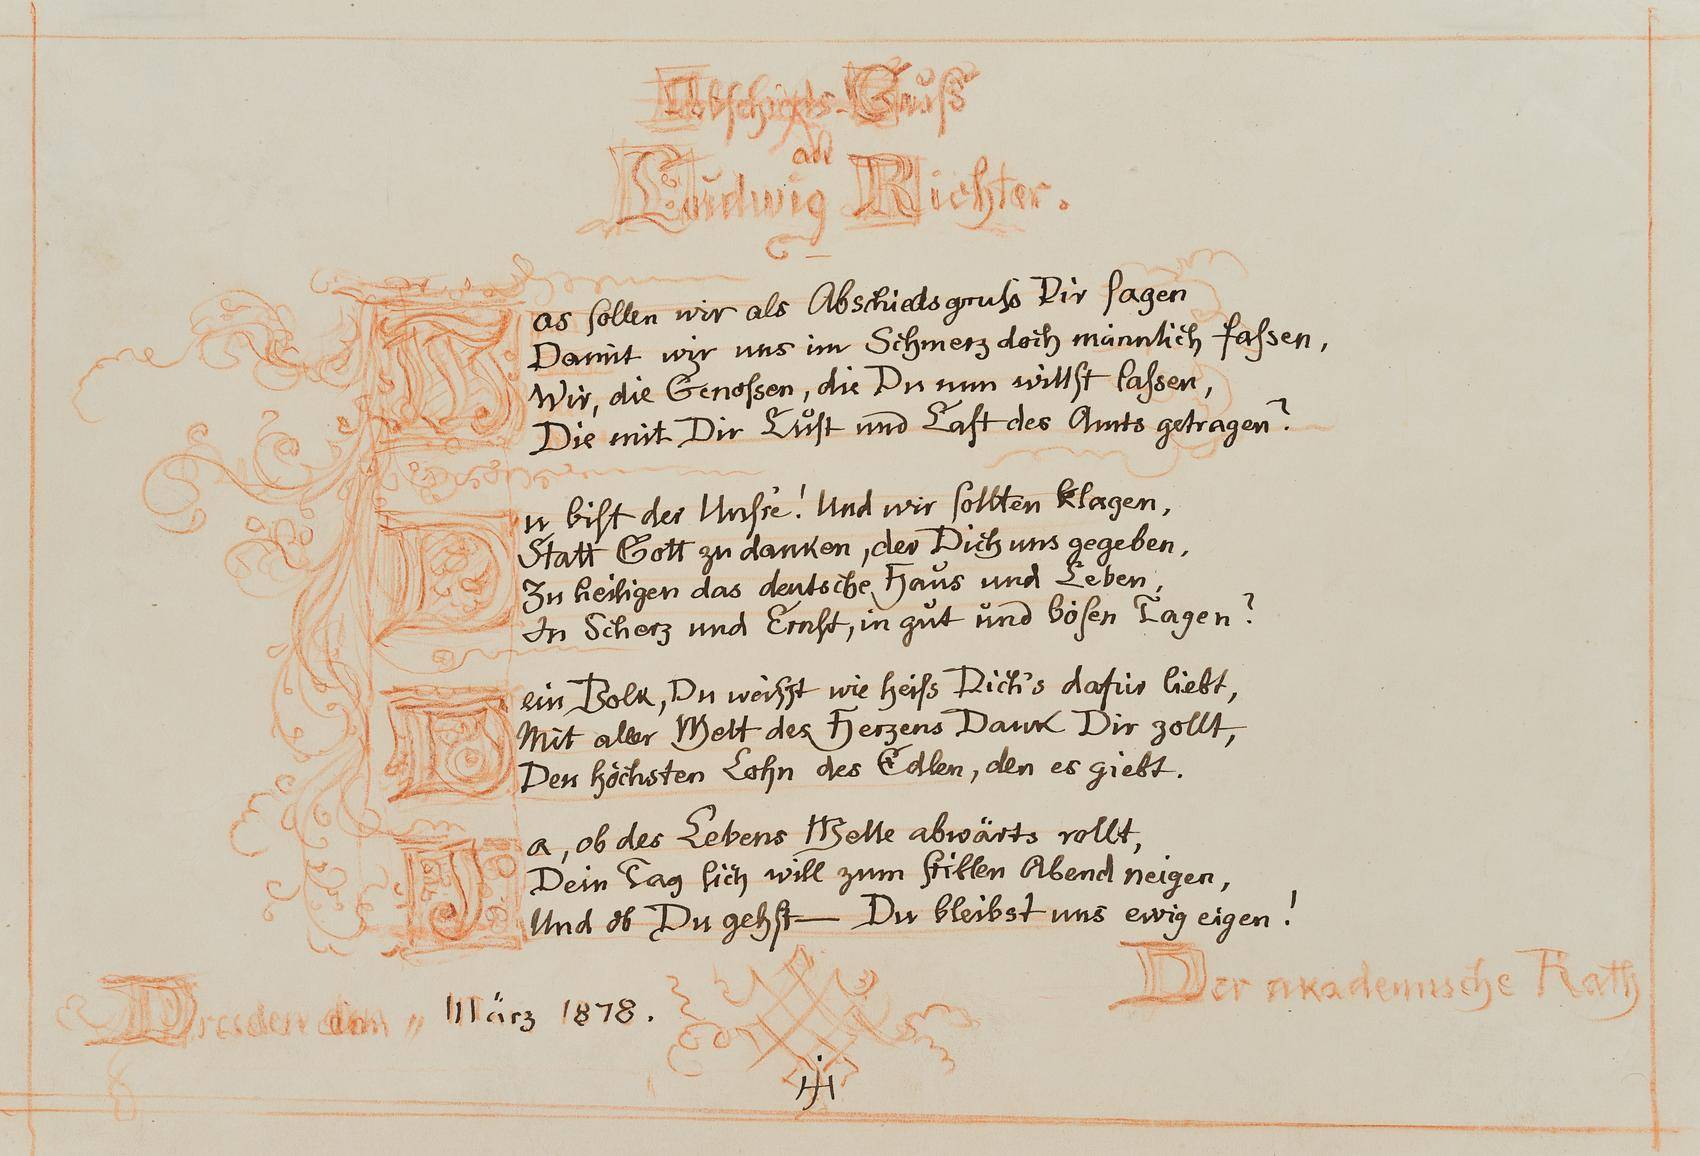 Abschieds-Gruß
an
Ludwig Richter.
Was sollen wir als Abschiedsgruss Dir sagen
Damit wir uns im Schmerz doch männlich fassen,
Wir, die Genossen, die Du nun willst lassen,
Die mit Dir Lust und Last des Amts getragen?
Du bist der Unsre! Und wir sollten klagen,
Statt Gott zu danken, der Dich uns gegeben,
Zu heiligen das deutsche Haus und Leben,
In Scherz und Ernst, in gut und bösen Tagen?
Dein Volk, Du weisst wie heiss Dich's dafür liebt,
Mit aller Welt des Herzens Dank Dir zollt,
Den höchsten Lohn des Edlen, den es giebt.
Ja, ob des Lebens Welle abwärts rollt,
Dein Tag sich will zum stillen Abend neigen,
Und ob Du gehst— Du bleibst uns ewig eigen!
Der akademische Rath
Dresden den „ März 1878.